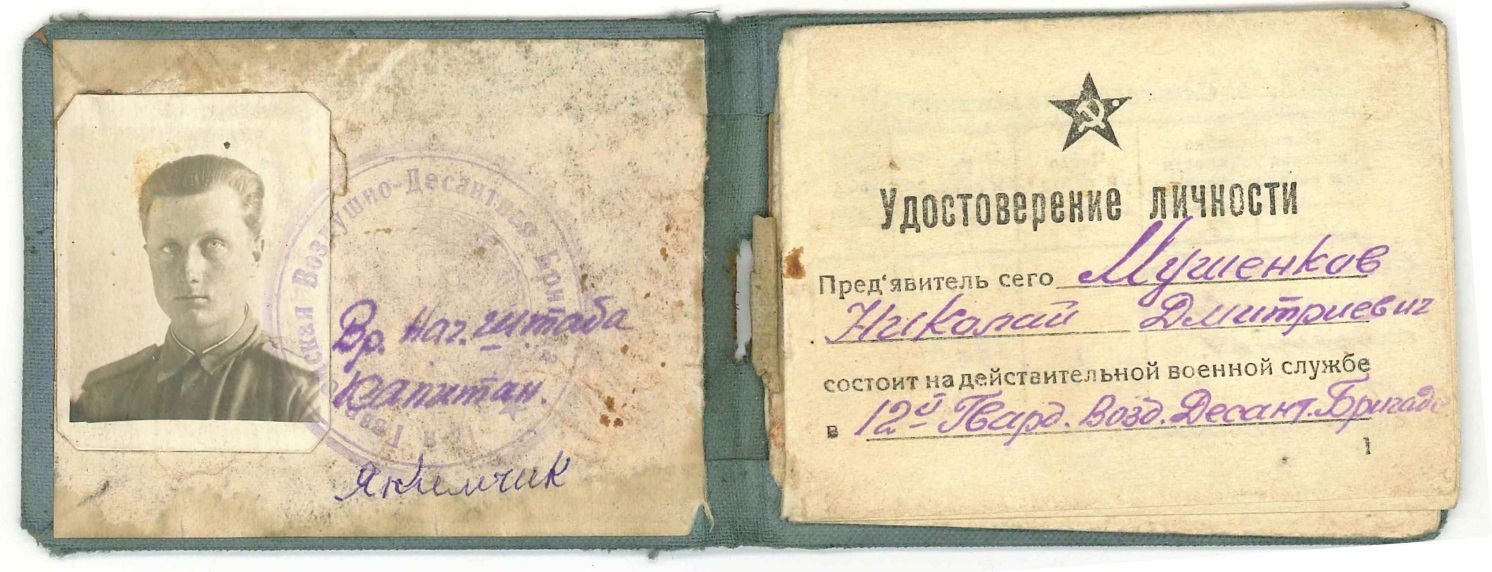 Воздушно-Десантная
Вр. Нач. штаба
Капитан.
Якимчик
Удостоверение личности
Пред'явитель сего Мушенков
Николай Дмитриевич
состоит на действительной военной службе
в 12й Гвард. Возд. Десант. Бригаде
1